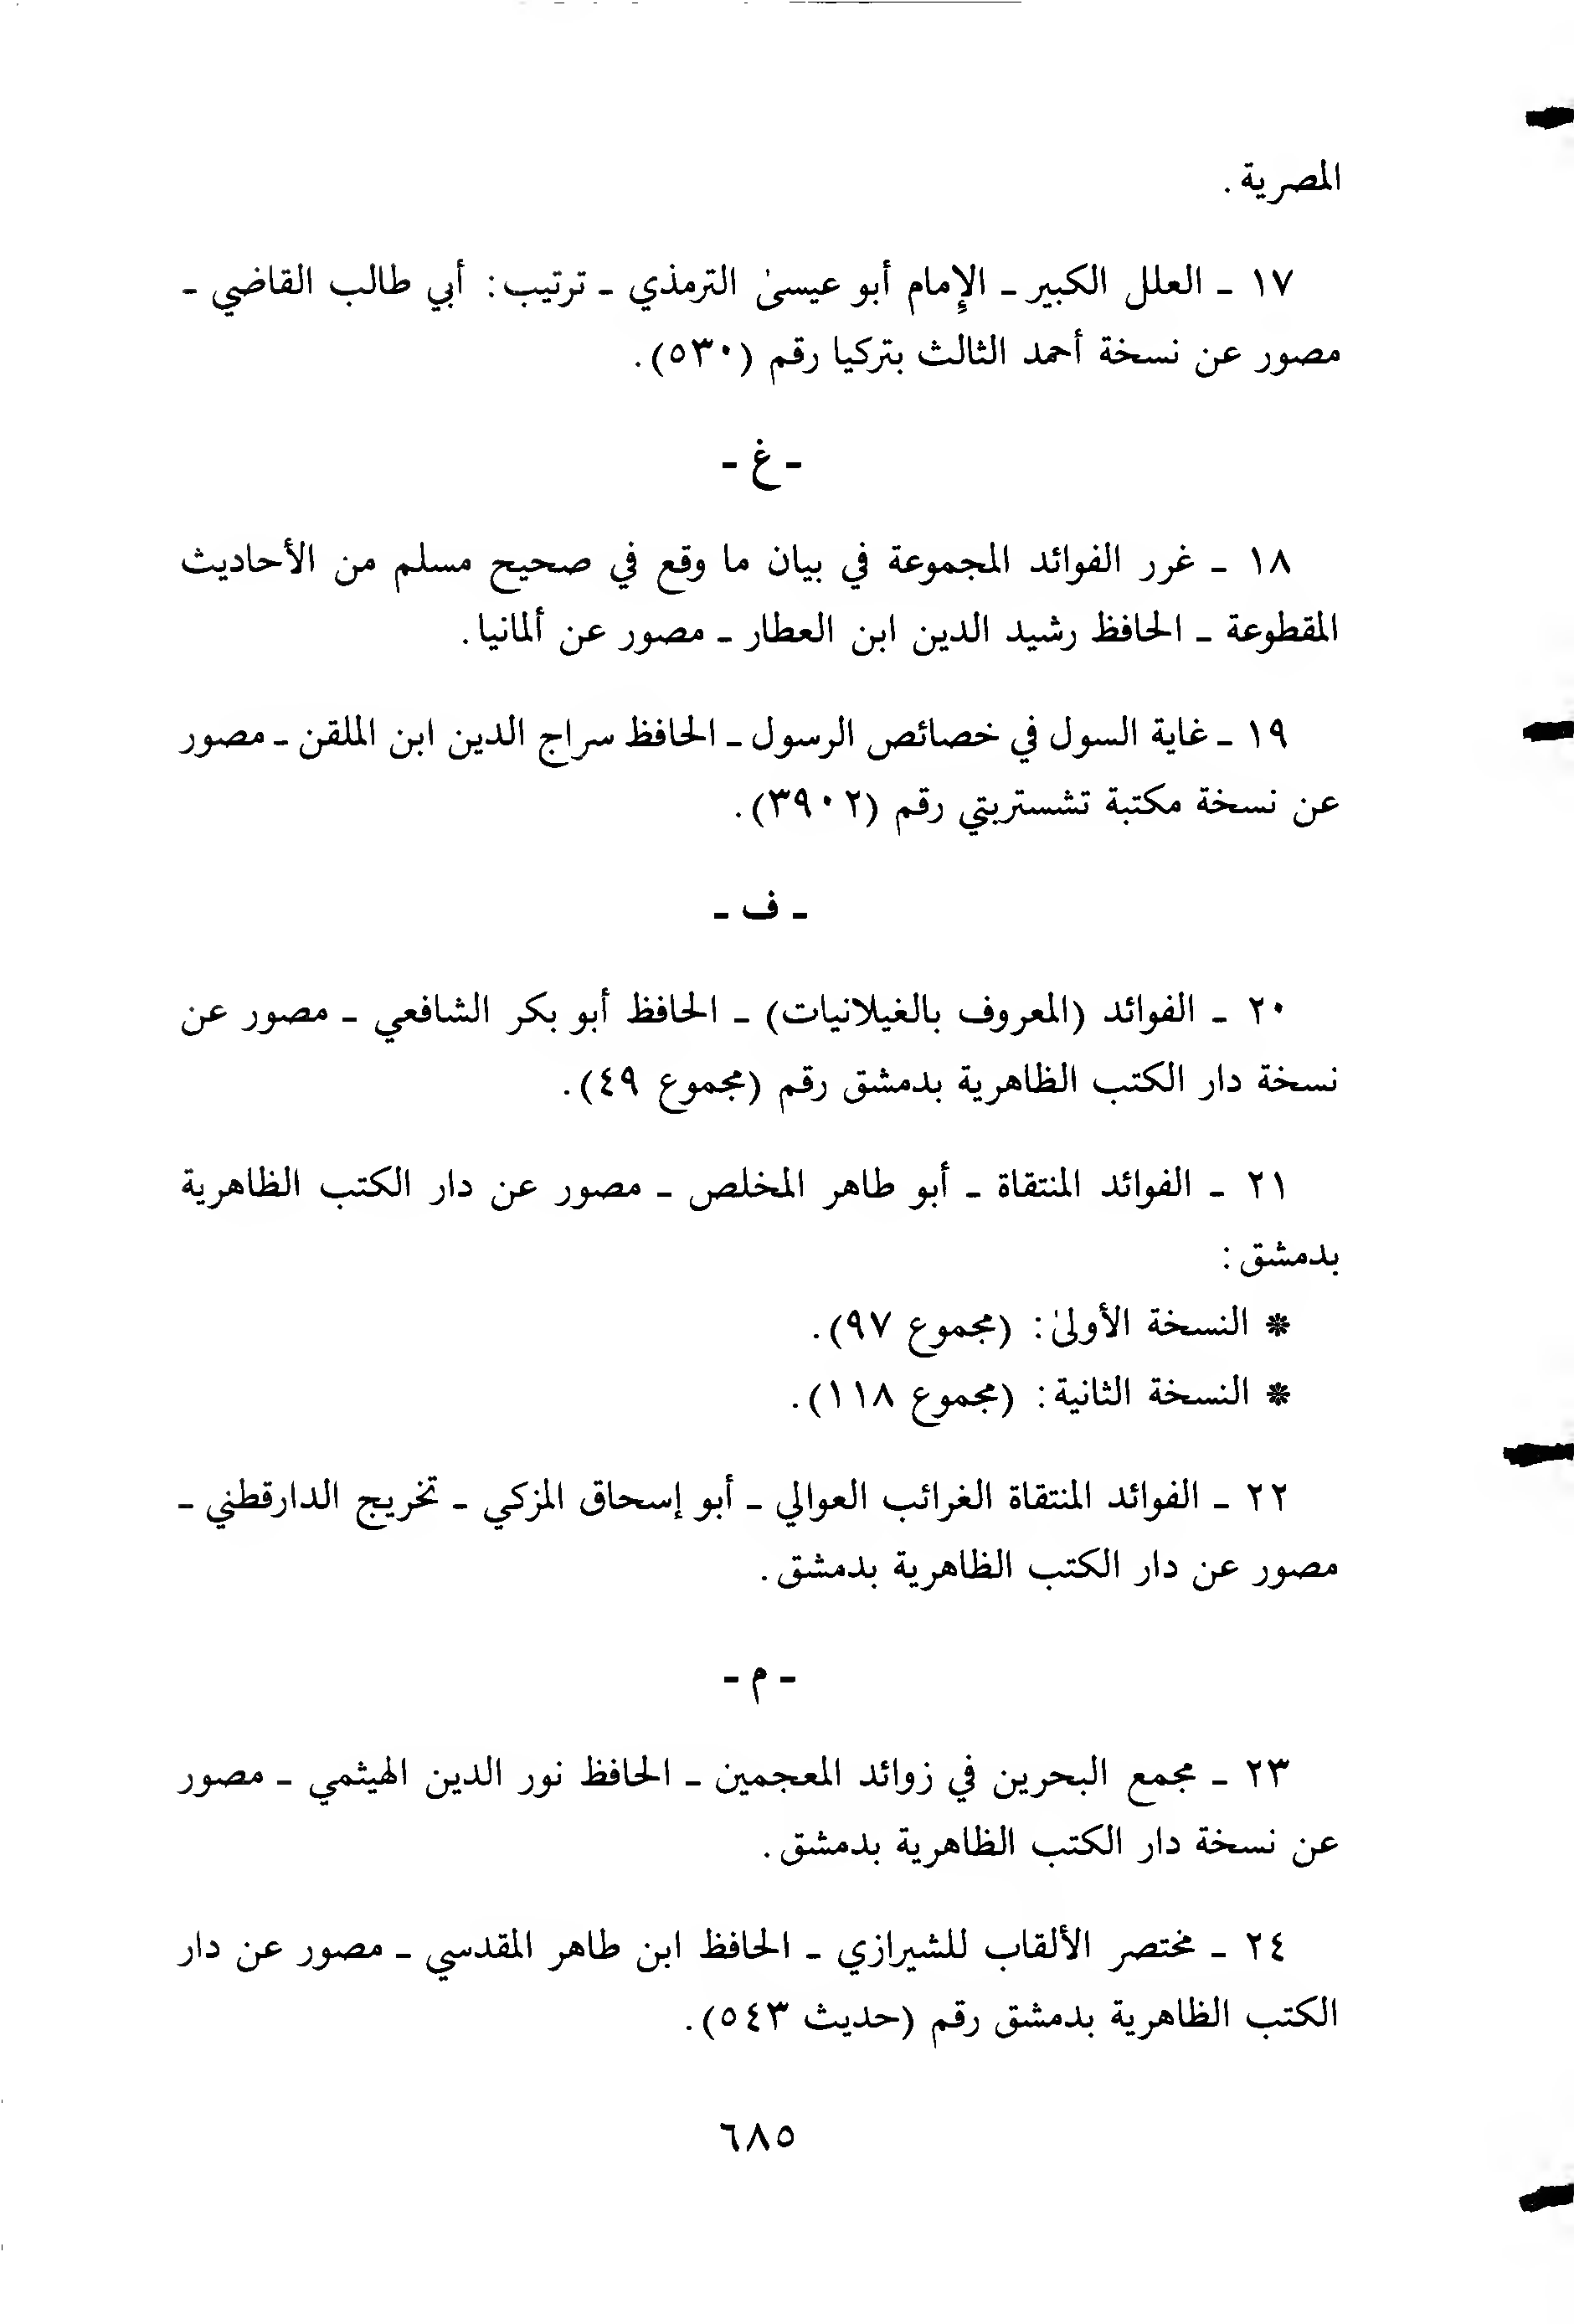 المصرية .
١٧ ـ العلل الكبير ـ الإمام أبو عيسىٰ الترمذي ـ ترتيب: أبي طالب القاضي ـ
مصور عن نسخة أحمد الثالث بتركيا رقم (٥٣٠).
ـ غ ـ
١٨ ـ غرر الفوائد المجموعة في بيان ما وقع في صحيح مسلم من الأحاديث
المقطوعة ـ الحافظ رشيد الدين ابن العطار ـ مصور عن ألمانيا.
١٩ ـ غاية السول في خصائص الرسول ـ الحافظ سراج الدين ابن الملقن ـ مصور
عن نسخة مكتبة تشستربتي رقم (٣٩٠٢).
ـ ف ـ
٢٠ ـ الفوائد (المعروف بالغيلانيات) ـ الحافظ أبو بكر الشافعي ـ مصور عن
نسخة دار الكتب الظاهرية بدمشق رقم (مجموع ٤٩).
٢١ ـ الفوائد المنتقاة ـ أبو طاهر المخلص ـ مصور عن دار الكتب الظاهرية
بدمشق :
* النسخة الأولىٰ: (مجموع ٩٧).
* النسخة الثانية: (مجموع ١١٨).
٢٢ ـ الفوائد المنتقاة الغرائب العوالي ـ أبو إسحاق المزكي ـ تخريج الدارقطني ـ
مصور عن دار الكتب الظاهرية بدمشق.
ـ م ـ
٢٣ ـ مجمع البحرين في زوائد المعجمين ـ الحافظ نور الدين الهيثمي ـ مصور
عن نسخة دار الكتب الظاهرية بدمشق.
٢٤ ـ مختصر الألقاب للشيرازي ـ الحافظ ابن طاهر المقدسي ـ مصور عن دار
الكتب الظاهرية بدمشق رقم (حديث ٥٤٣).
٦٨٥